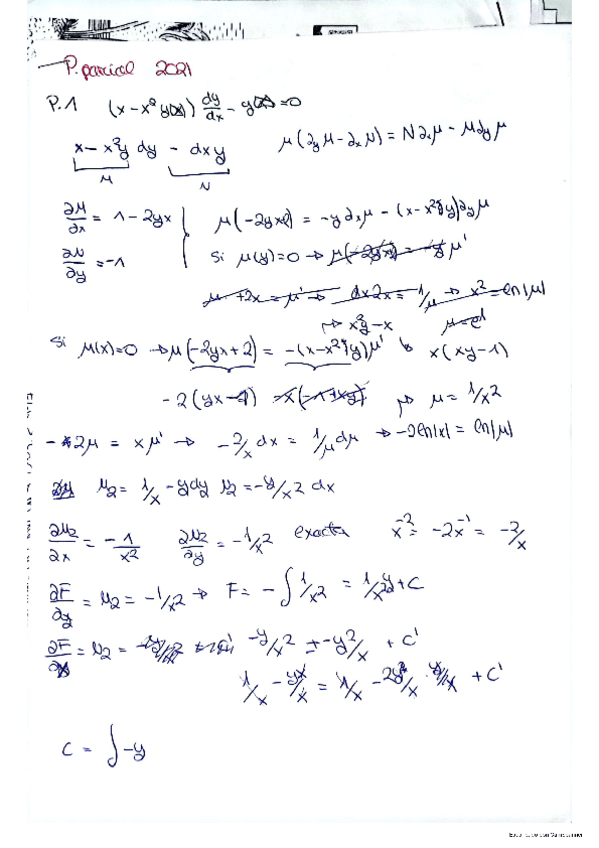 P. parcial 2021
P.1 (x - x²y(x)) dy/dx - y(x) = 0
x - x²y dy - dx y μ(∂yM - ∂xN) = N∂xμ - M∂yμ
M N
∂M/∂x = 1 - 2yx μ(-2yx+2) = -y∂xμ - (x - x²y)∂yμ
∂N/∂y = -1 Si μ(y)=0 → μ(-2yx) = -y μ'
μ +2x = μ' → dx2x = 1/μ → x² = ln|μ|
→ x²y - x
Si μ(x)=0 → μ(-2yx+2) = -(x - x²y)μ' x(xy-1)
-2(yx-1) x(-1+xy) → μ = 1/x²
-2μ = xμ' → -2/x dx = 1/μ dμ → -2ln|x| = ln|μ|
M2 = 1/x - y dy N2 = -y/x2 dx
∂M2/∂x = -1/x² ∂N2/∂y = -1/x² exacta x⁻² = -2x⁻¹ = -2/x
∂F/∂y = M2 = -1/x2 → F = -∫1/x2 = 1/x y + C
∂F/∂x = N2 = -y/x2 = -y²/x + C'
1/x - yx/x = 1/x - 2y/x · y/x + C'
C = ∫-y